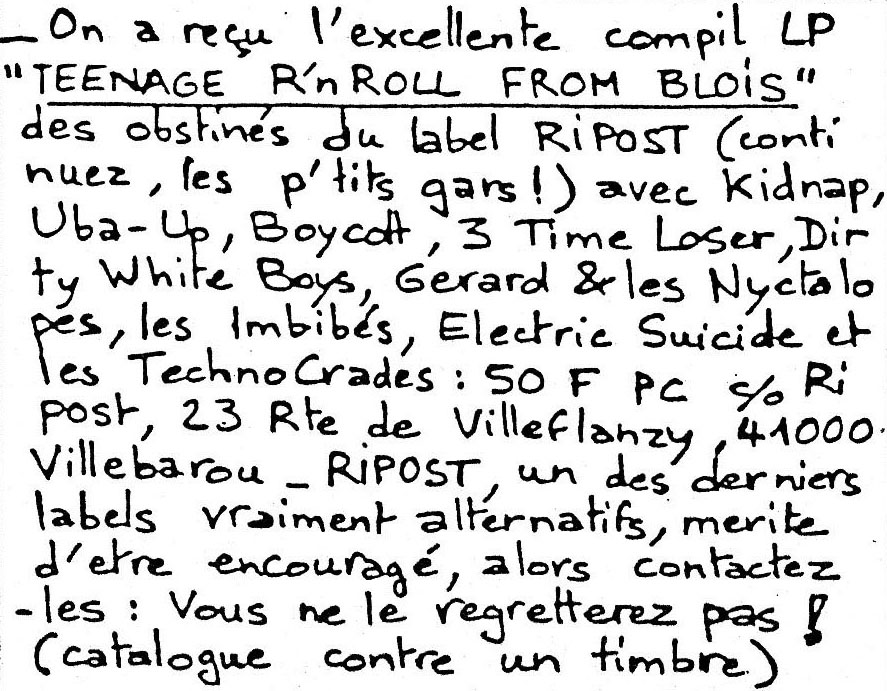 _ On a reçu l'excellente compil LP
"TEENAGE R'n ROLL FROM BLOiS"
des obstinés du label RiPOST (conti
nuez, les p'tits gars!) avec Kidnap,
Uba-Up, Boycott, 3 Time Loser, Dir
ty White Boys, Gerard & les Nyctalo
pes, les Imbibés, Electric Suicide et
les TechnoCrades : 50 F PC c/o Ri
post, 23 Rte de Villeflanzy, 41000
Villebarou _ RiPOST, un des derniers
labels vraiment alternatifs, merite
d'etre encouragé, alors contactez
-les : Vous ne le regretterez pas !
(catalogue contre un timbre.)